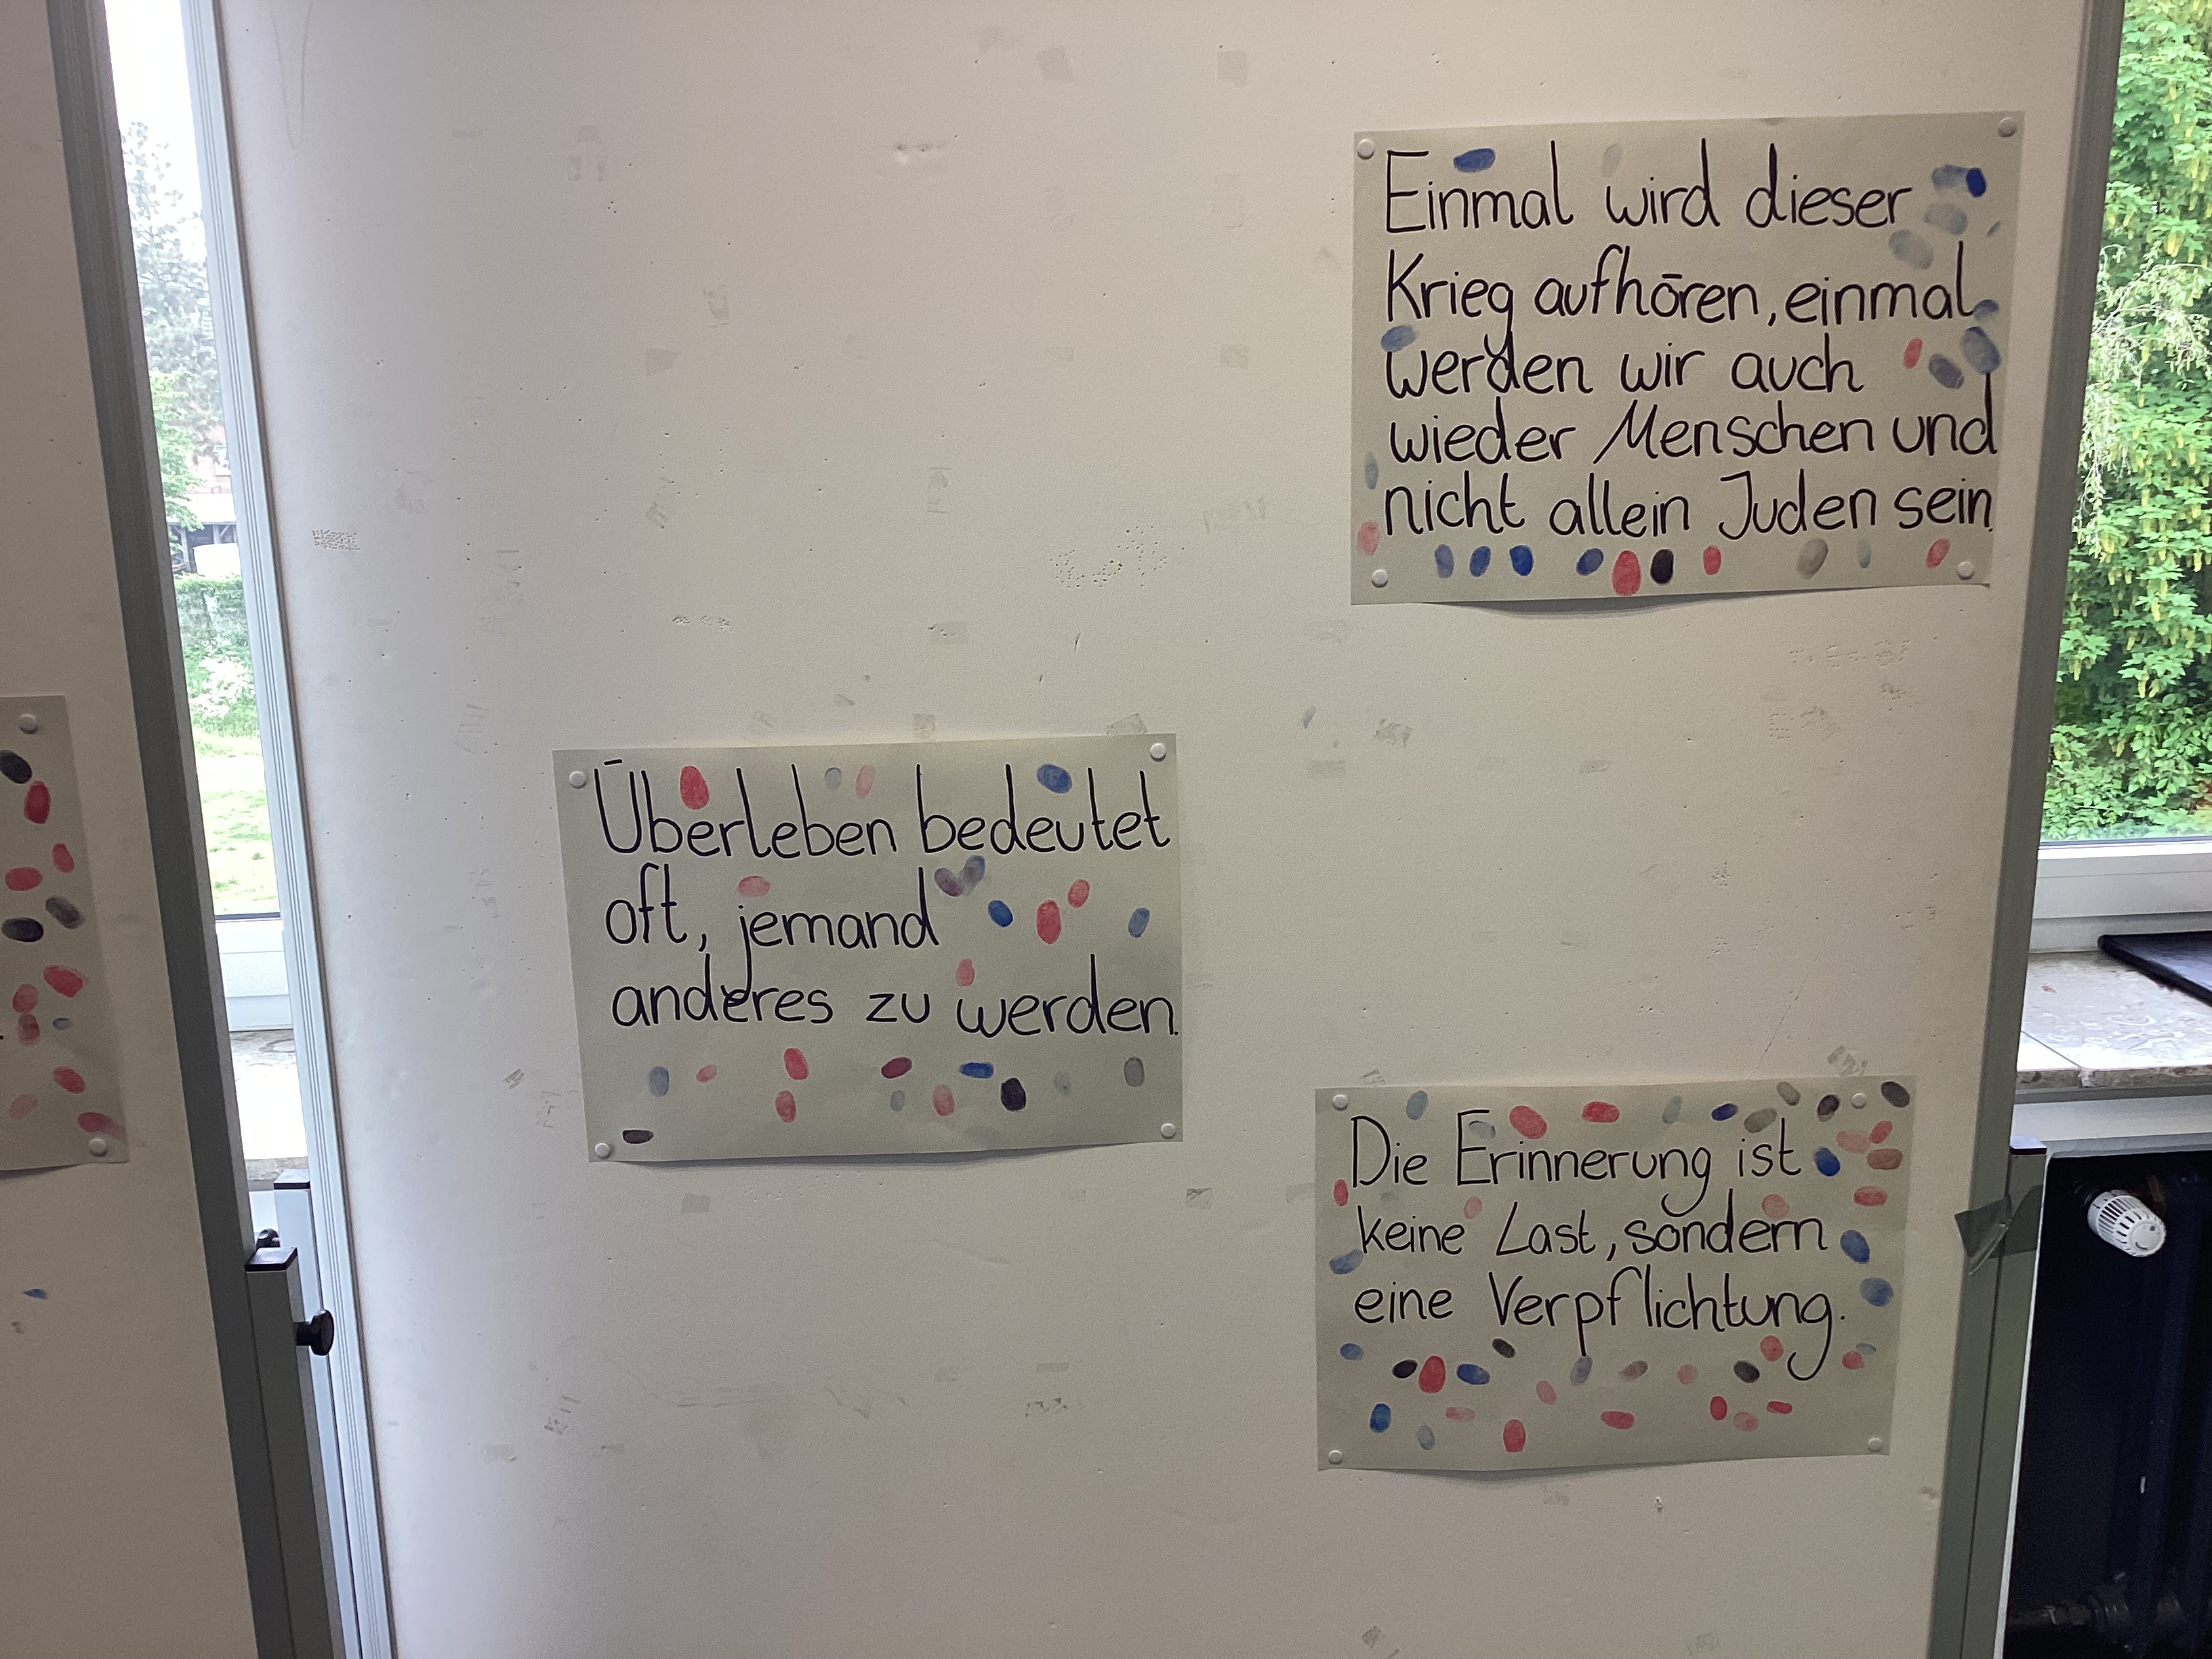 Einmal wird dieser
Krieg aufhören, einmal
werden wir auch
wieder Menschen und
nicht allein Juden sein.
Überleben bedeutet
oft, jemand
anderes zu werden.
Die Erinnerung ist
keine Last, sondern
eine Verpflichtung.